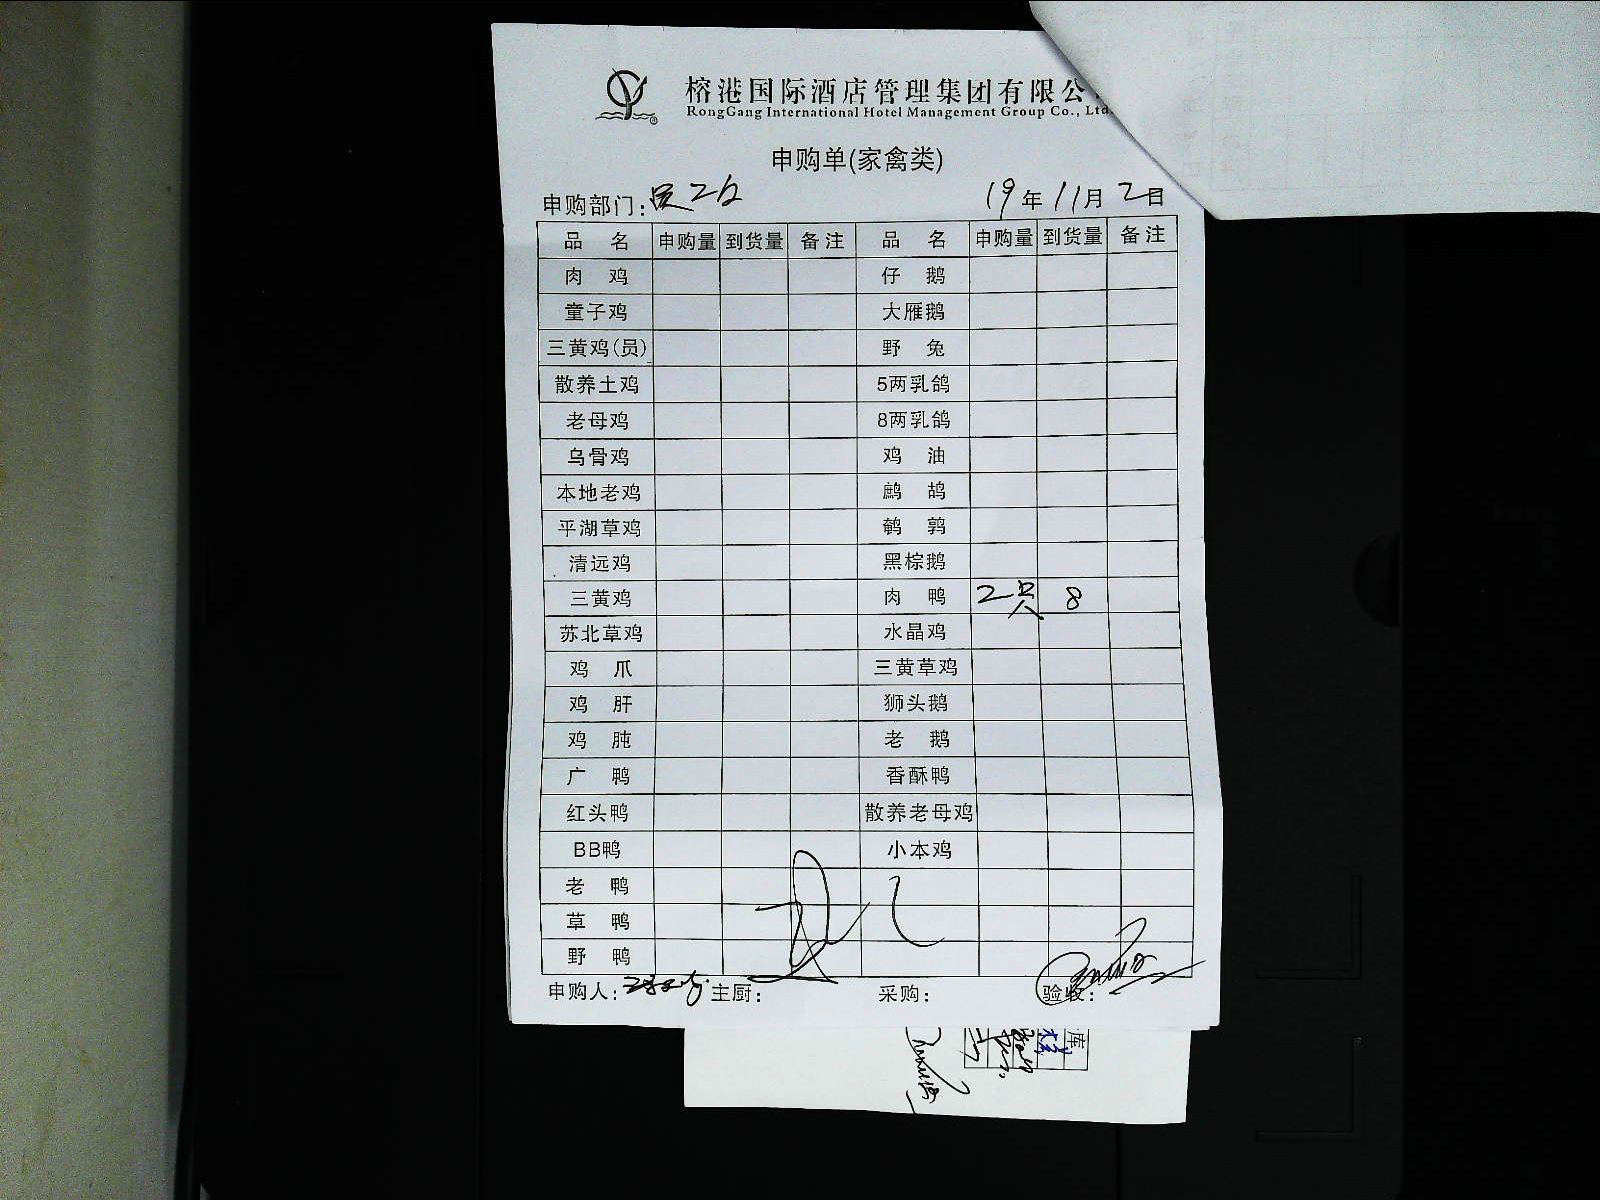 榕港国际酒店管理集团有限公
RongGang International Hotel Management Group Co., Ltd.
申购单(家禽类)
申购部门: 19年11月2日
品名 申购量 到货量 备注 品名 申购量 到货量 备注
肉鸡 仔鹅
童子鸡 大雁鹅
三黄鸡(员) 野兔
散养土鸡 5两乳鸽
老母鸡 8两乳鸽
乌骨鸡 鸡油
本地老鸡 鹧鸪
平湖草鸡 鹌鹑
清远鸡 黑棕鹅
三黄鸡 肉鸭 2只 8
苏北草鸡 水晶鸡
鸡爪 三黄草鸡
鸡肝 狮头鹅
鸡肫 老鹅
广鸭 香酥鸭
红头鸭 散养老母鸡
BB鸭 小本鸡
老鸭
草鸭
野鸭
申购人: 主厨: 采购: 验收:
库